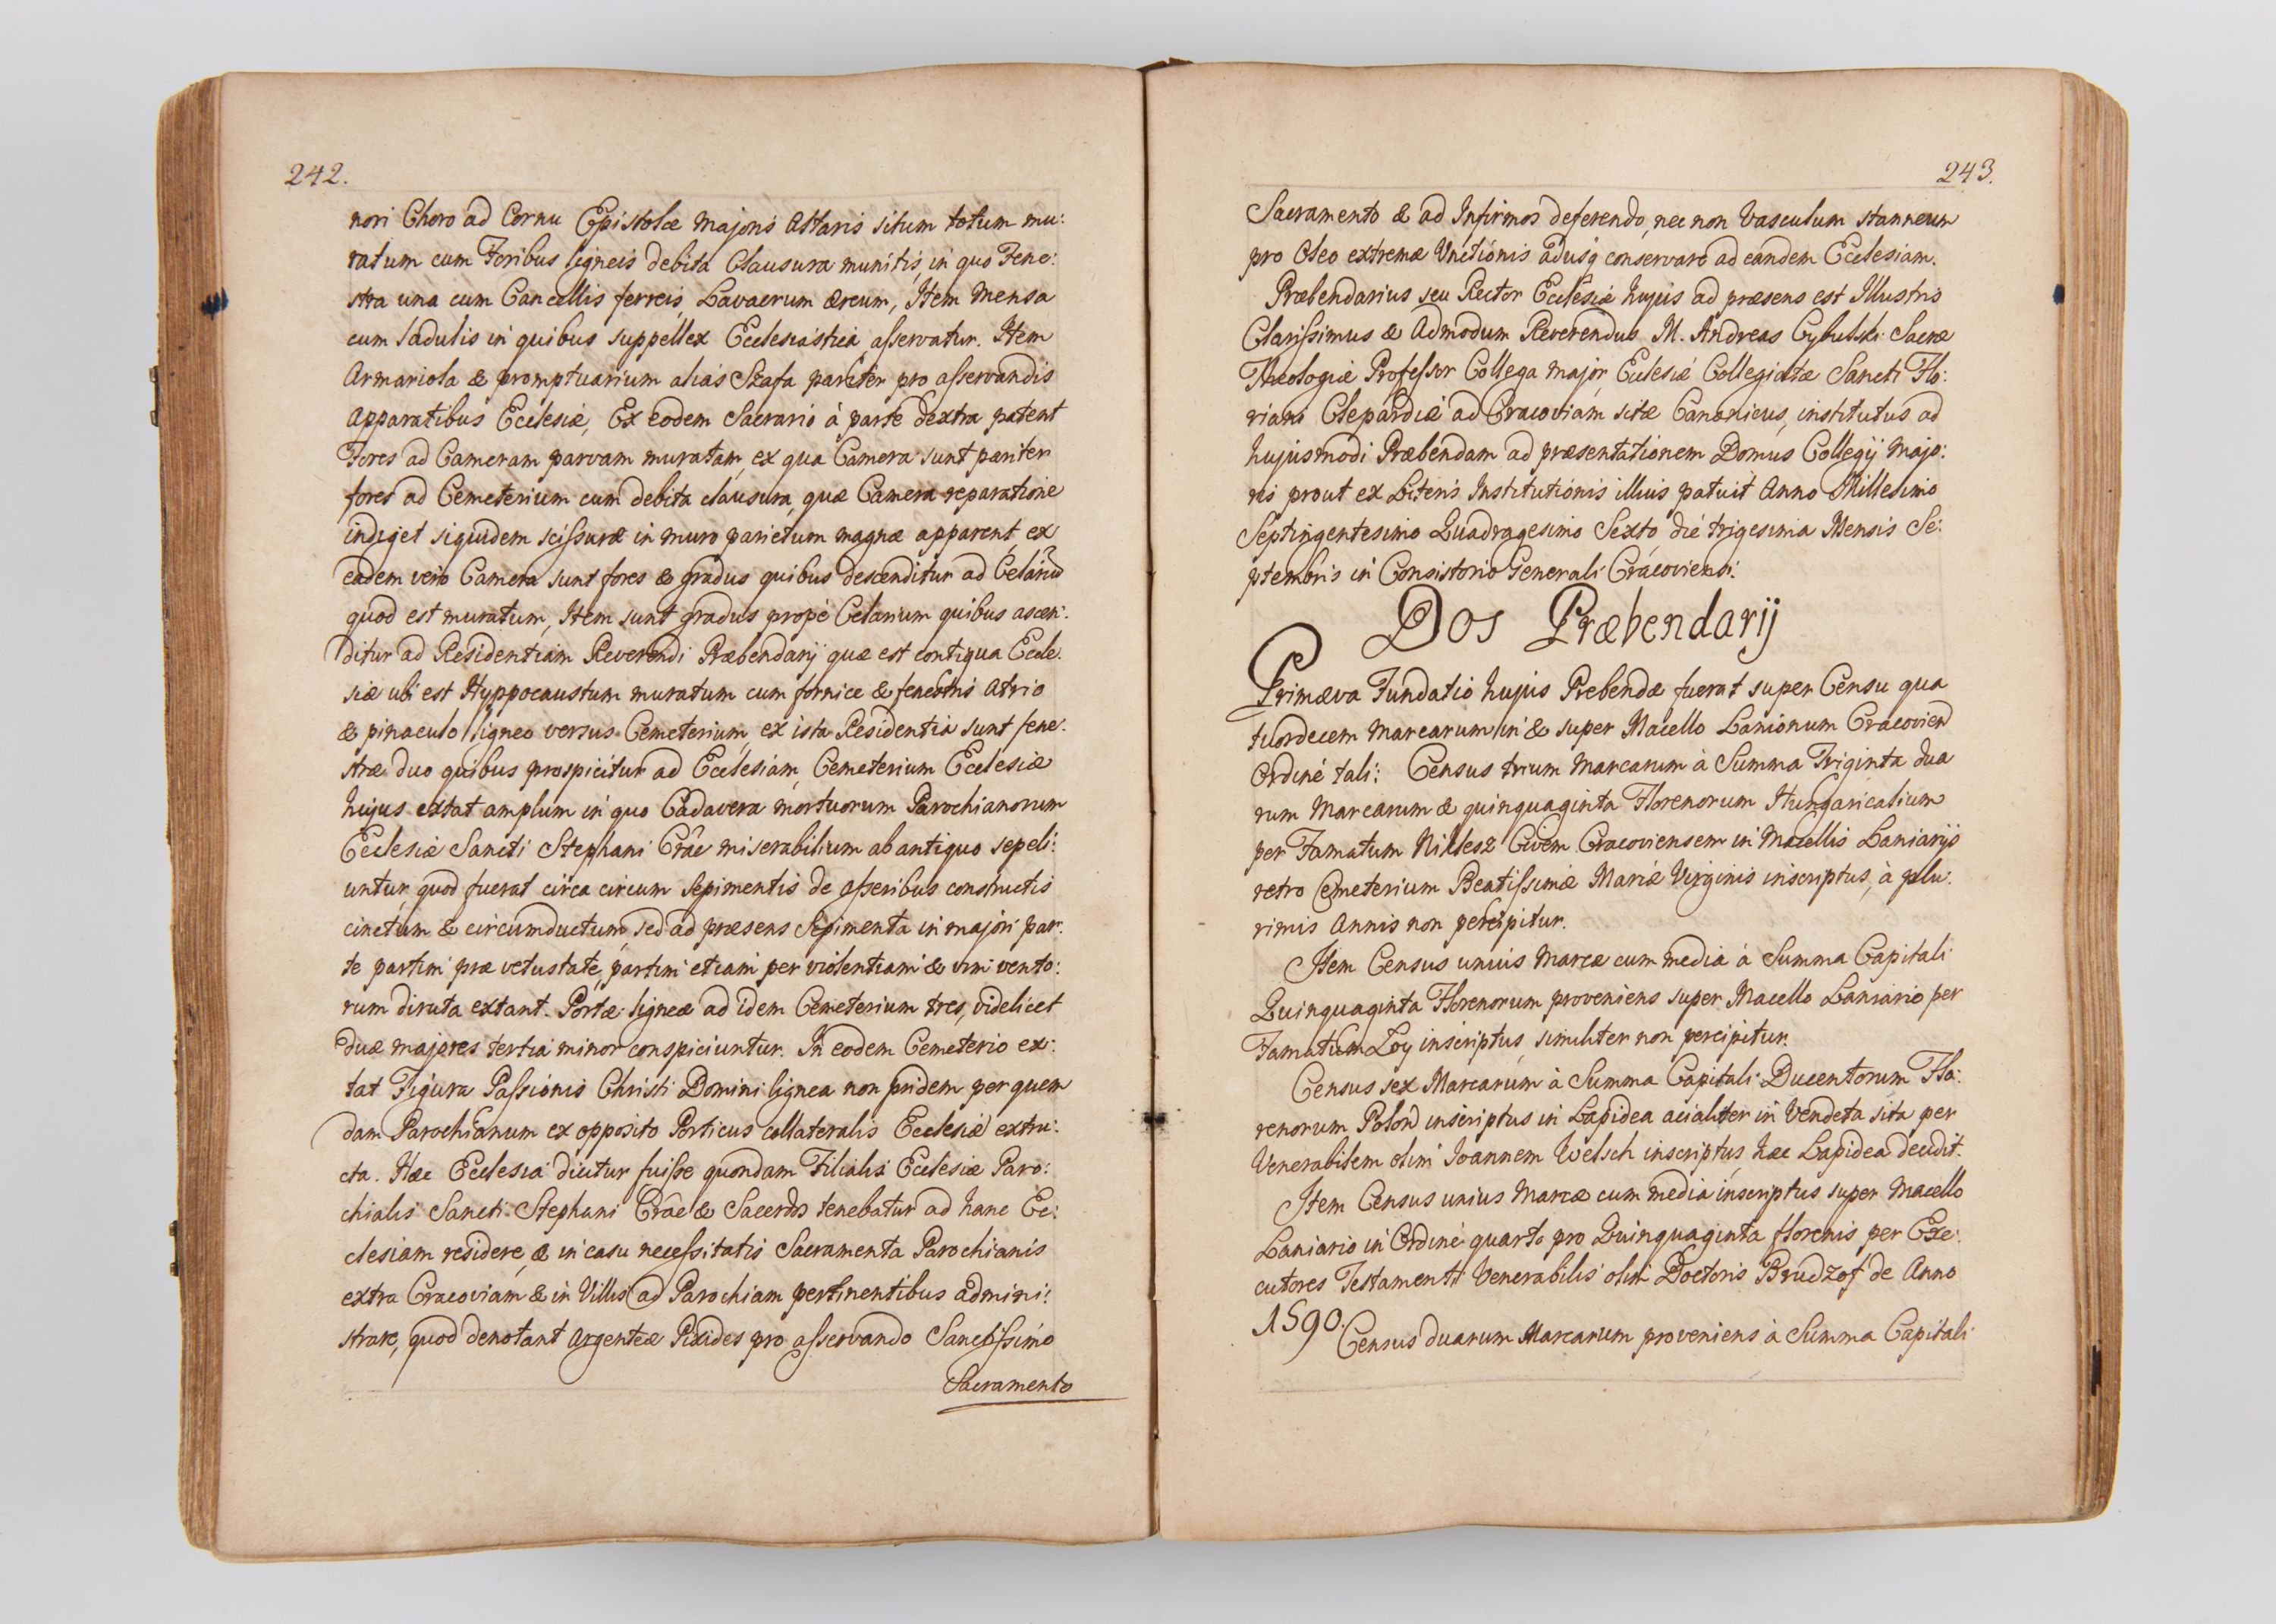 242.
nori Choro ad Cornu Epistolæ majoris Altaris situm totum mu:
ratum cum Foribus ligneis debita Clausura munitis, in quo Fene:
stra una cum Cancellis ferreis, Lavacrum æreum, Item Mensa
cum ladulis in quibus suppellex Ecclesiastica asservatur. Item
Armariola & promptuarium alias Szafa pariter pro asservandis
Apparatibus Ecclesiæ, Ex eodem Sacrario à parte dextra patent
Fores ad Cameram parvam muratam, ex qua Camera sunt pariter
fores ad Cemeterium cum debita clausura, quæ Camera reparatione
indiget siquidem scissuræ in muro parietum magnæ apparent, ex
eadem vero Camera sunt fores & gradus quibus descenditur ad Celariũ
quod est muratum, Item sunt gradus propè Celarium quibus ascen:
ditur ad Residentiam Reverendi Præbendarij quæ est contiqua Eccle:
siæ ubi est Hyppocaustum muratum cum fornice & fenestris Atrio
& pinaculo ligneo versus Cemeterium, ex ista Residentia sunt fene:
stræ duo quibus prospicitur ad Ecclesiam, Cemeterium Ecclesiæ
hujus extat amplum in quo Cadavera mortuorum Parochianorum
Ecclesiæ Sancti Stephani Crãe miserabilium ab antiquo sepeli:
untur, quod fuerat circa circum Sepimentis de asseribus constructis
cinctum & circumductum, sed ad præsens Sepimenta in majori par:
te partim præ vetustate, partim etiam per violentiam & vim vento:
rum diruta extant. Portæ ligneæ ad idem Cemeterium tres, videlicet
duæ majores tertia minor conspiciuntur. In eodem Cemeterio ex:
tat Figura Passionis Christi Domini lignea non pridem per quem
dam Parochianum ex opposito Porticus collateralis Ecclesiæ extru:
cta. Hæc Ecclesia dicitur fuisse quondam Filialis Ecclesiæ Paro:
chialis Sancti Stephani Crãe & Sacerdos tenebatur ad hanc Ec:
clesiam residere, & in casu necessitatis Sacramenta Parochianis
extra Cracoviam & in Villis ad Parochiam pertinentibus admini:
strare, quod denotant Argenteæ Pixides pro asservando Sanctissimo
Sacramento
243.
Sacramento & ad Infirmos deferendo, nec non Vasculum stanneum
pro Oleo extremæ Unctionis adusq conservare ad eandem Ecclesiam.
Præbendarius seu Rector Ecclesiæ hujus ad præsens est Illustris
Clarissimus & Admodum Reverendus M. Andreas Cybulski Sacræ
Theologiæ Professor Collega major, Eclesiæ Collegiatæ Sancti Flo:
riani Clepardiæ ad Cracoviam sitæ Canonicus, institutus ad
hujusmodi Præbendam ad præsentationem Domus Collegij Majo:
ris prout ex Literis Institutionis illius patuit Anno Millesimo
Septingentesimo Quadragesimo Sexto, die trigesima Mensis Se:
ptembris in Consistorio Generali Cracoviensi.
Dos Præbendarij
Primæva Fundatio hujus Prebendæ fuerat super Censu qua
tuordecem Marcarum in & super Macello Lanionum Cracovień
Ordine tali: Census trium Marcarum à Summa Triginta dua
rum Marcarum & quinquaginta Florenorum Hungaricalium
per Famatum Niklesz Civem Cracoviensem in Macellis Laniarijs
retro Cemeterium Beatissimæ Mariæ Virginis inscriptus, à plu:
rimis Annis non percipitur.
Item Census unius Marcæ cum media à Summa Capitali
Quinquaginta Florenorum proveniens super Macello Laniario per
Famatum Loy inscriptus, similiter non percipitur.
Census sex Marcarum à Summa Capitali Ducentorum Flo:
renorum Polon̄ inscriptus in Lapidea acialiter in Vendeta sita per
Venerabilem olim Joannem Welsch inscriptus, hæc Lapidea decidit.
Item Census unius Marcæ cum media inscriptus super Macello
Laniario in Ordine quarto pro Quinquaginta florenis per Exe:
cutores Testamenti Venerabilis olim Doctoris Brudzof de Anno
1590.
Census duarum Marcarum proveniens à Summa Capitali